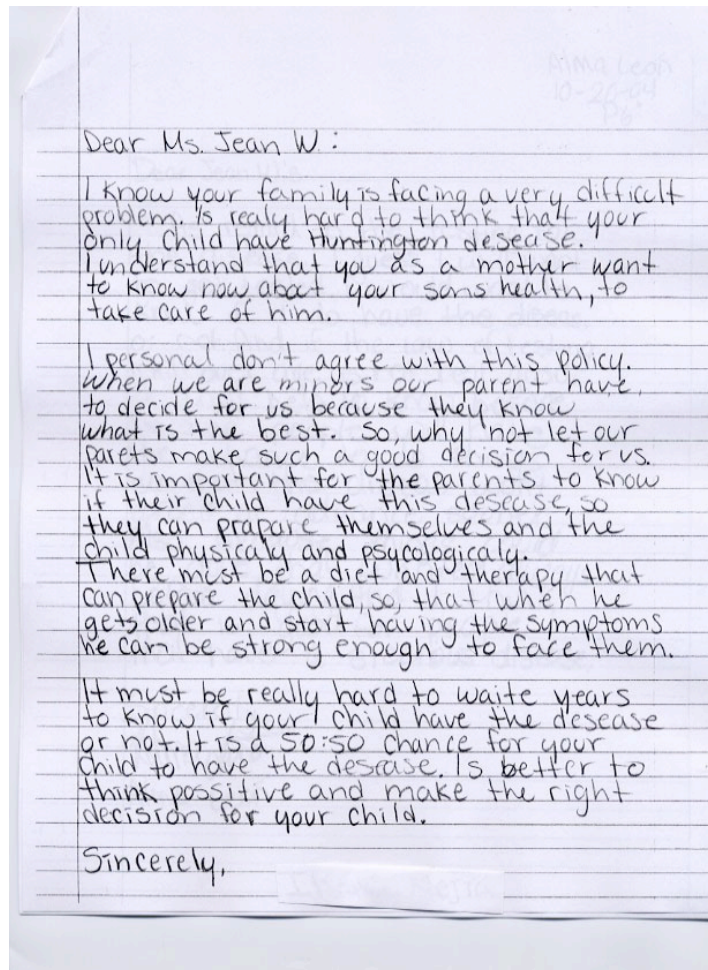 Dear Ms. Jean W :
I know your family is facing a very difficult
problem. Is realy hard to think that your
only Child have Huntington desease.
I understand that you as a mother want
to know now about your sons health, to
take care of him.
I personal don't agree with this policy.
When we are minors our parent have
to decide for us because they know
what is the best. So, why not let our
parets make such a good decision for us.
It is important for the parents to know
if their child have this desease, so
they can prapare themselves and the
child physicaly and psycologicaly.
There must be a diet and therapy that
can prepare the child, so, that when he
gets older and start having the symptoms
he can be strong enough to face them.
It must be really hard to waite years
to know if your child have the desease
or not. It is a 50:50 chance for your
child to have the desease. Is better to
think possitive and make the right
decision for your child.
Sincerely,